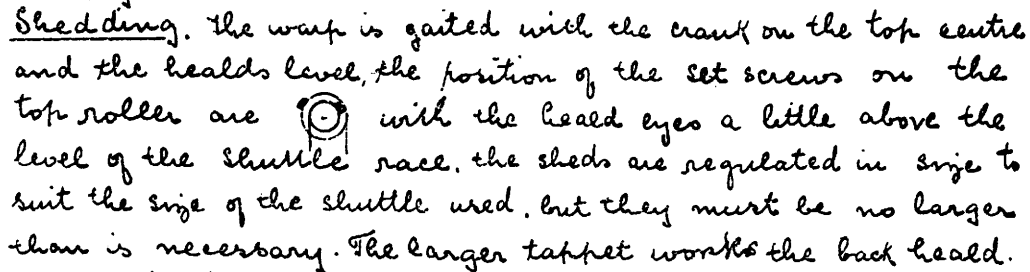 Shedding. The warp is gaited with the crank on the top centre
and the healds level, the position of the set screws on the
top roller are with the heald eyes a little above the
level of the shuttle race. the sheds are regulated in size to
suit the size of the shuttle used, but they must be no larger
than is necessary. The larger tappet works the back heald.